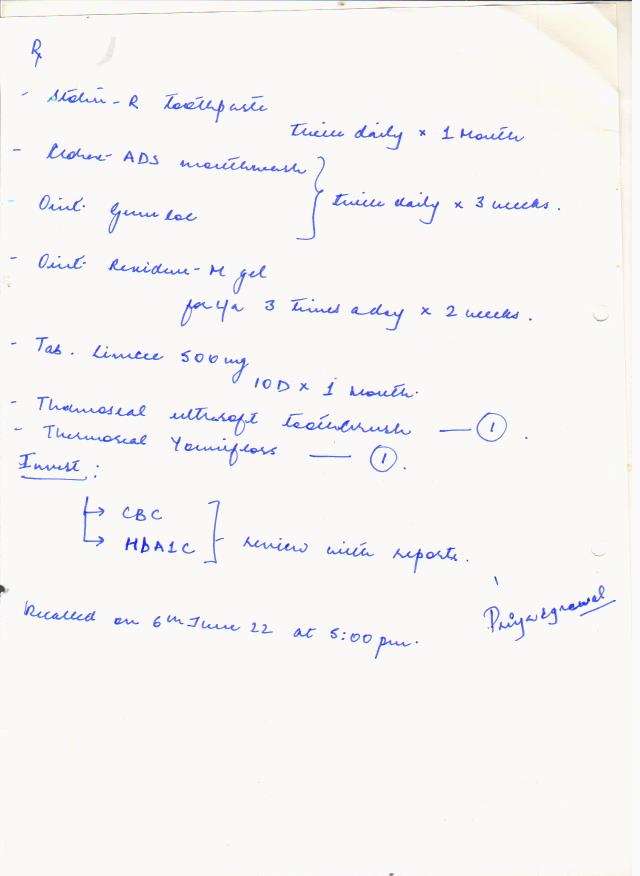 Rx
- Stolin-R toothpaste
twice daily x 1 Month
- Clohex-ADS mouthwash
twice daily x 3 weeks.
- Oint. Gum
- Oint. Rexidine-M gel
for 3 times a day x 2 weeks.
- Tab. Limcee 500mg
1OD x 1 Month.
- Thermoseal ultrasoft toothbrush — 1.
- Thermoseal — 1.
Invest:
→ CBC
→ HbA1C
review with reports.
Recalled on 6th June 22 at 5:00 pm.
Priya Agrawal